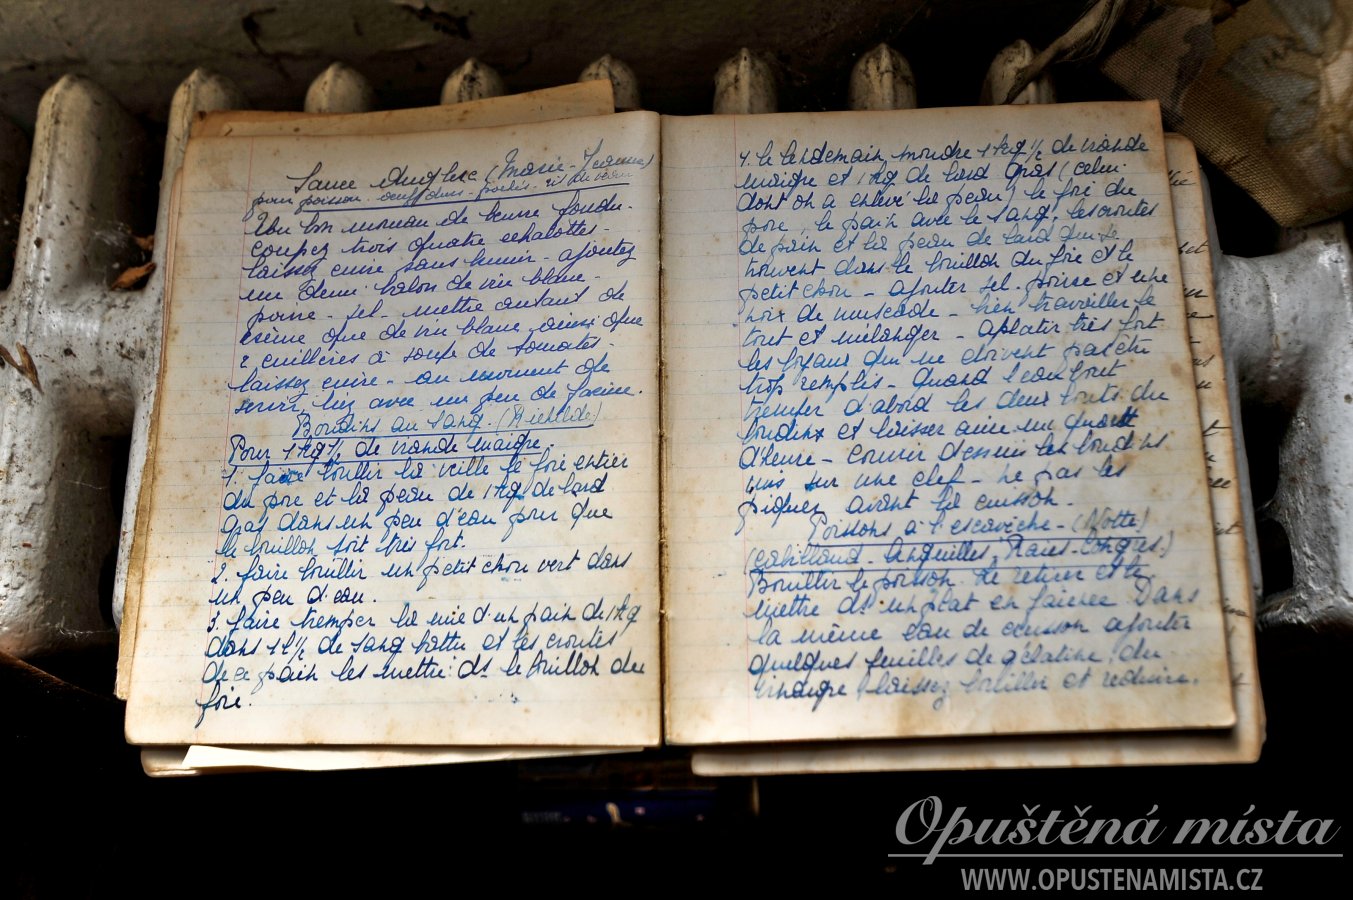 Sauce Anglese (Marie-
pour poisson - oeufs durs - poulet - ris de veau
Un bon morceau de beurre fondu.
coupez trois quatre echalottes -
laissez cuire sans brunir - ajoutez
un demi ballon de vin blanc -
poivre - sel - mettre autant de
crème que de vin blanc ainsi que
2 cuillères à soupe de tomates -
laissez cuire - au moment de
servir, liez avec un peu de farine.
Boudins au sang. (
Pour 1 kg ½ de viande maigre.
1. faire bouillir la veille le foie entier
du porc et la peau de 1 kg de lard
gras dans un peu d'eau pour que
le bouillon soit très fort.
2. faire bouillir un petit chou vert dans
un peu d'eau.
3. faire tremper la mie d'un pain de 1 kg
dans 1 l ½ de sang battu et les croutes
de ce pain les mettre ds le bouillon du
foie.
4. le lendemain, moudre 1 kg ½ de viande
maigre et 1 kg de lard gras (celui
dont on a enlevé la peau) le foie du
porc, le pain avec le sang, les croutes
de pain et la peau de lard qui se
trouvent dans le bouillon du foie et le
petit chou - ajouter sel - poivre et une
noix de muscade - bien travailler le
tout et mélanger - aplatir très fort
les boyaux qui ne doivent pas être
trop remplis - quand l'eau bout
tremper d'abord les deux bouts du
boudins et laisser cuire un quart
d'heure - Couvrir dessus les boudins
mis sur une clef - ne pas les
piquer avant la cuisson.
Poissons à l'escavèche - (Notte)
(cabillaud - Anguilles, Raies - Congres.)
Bouillir le poisson - le retirer et le
mettre ds un plat en faience. Dans
la même eau de cuisson ajouter
quelques feuilles de gélatine, du
vinaigre laissez bouillir et réduire.
Opuštěná místa
WWW.OPUSTENAMISTA.CZ